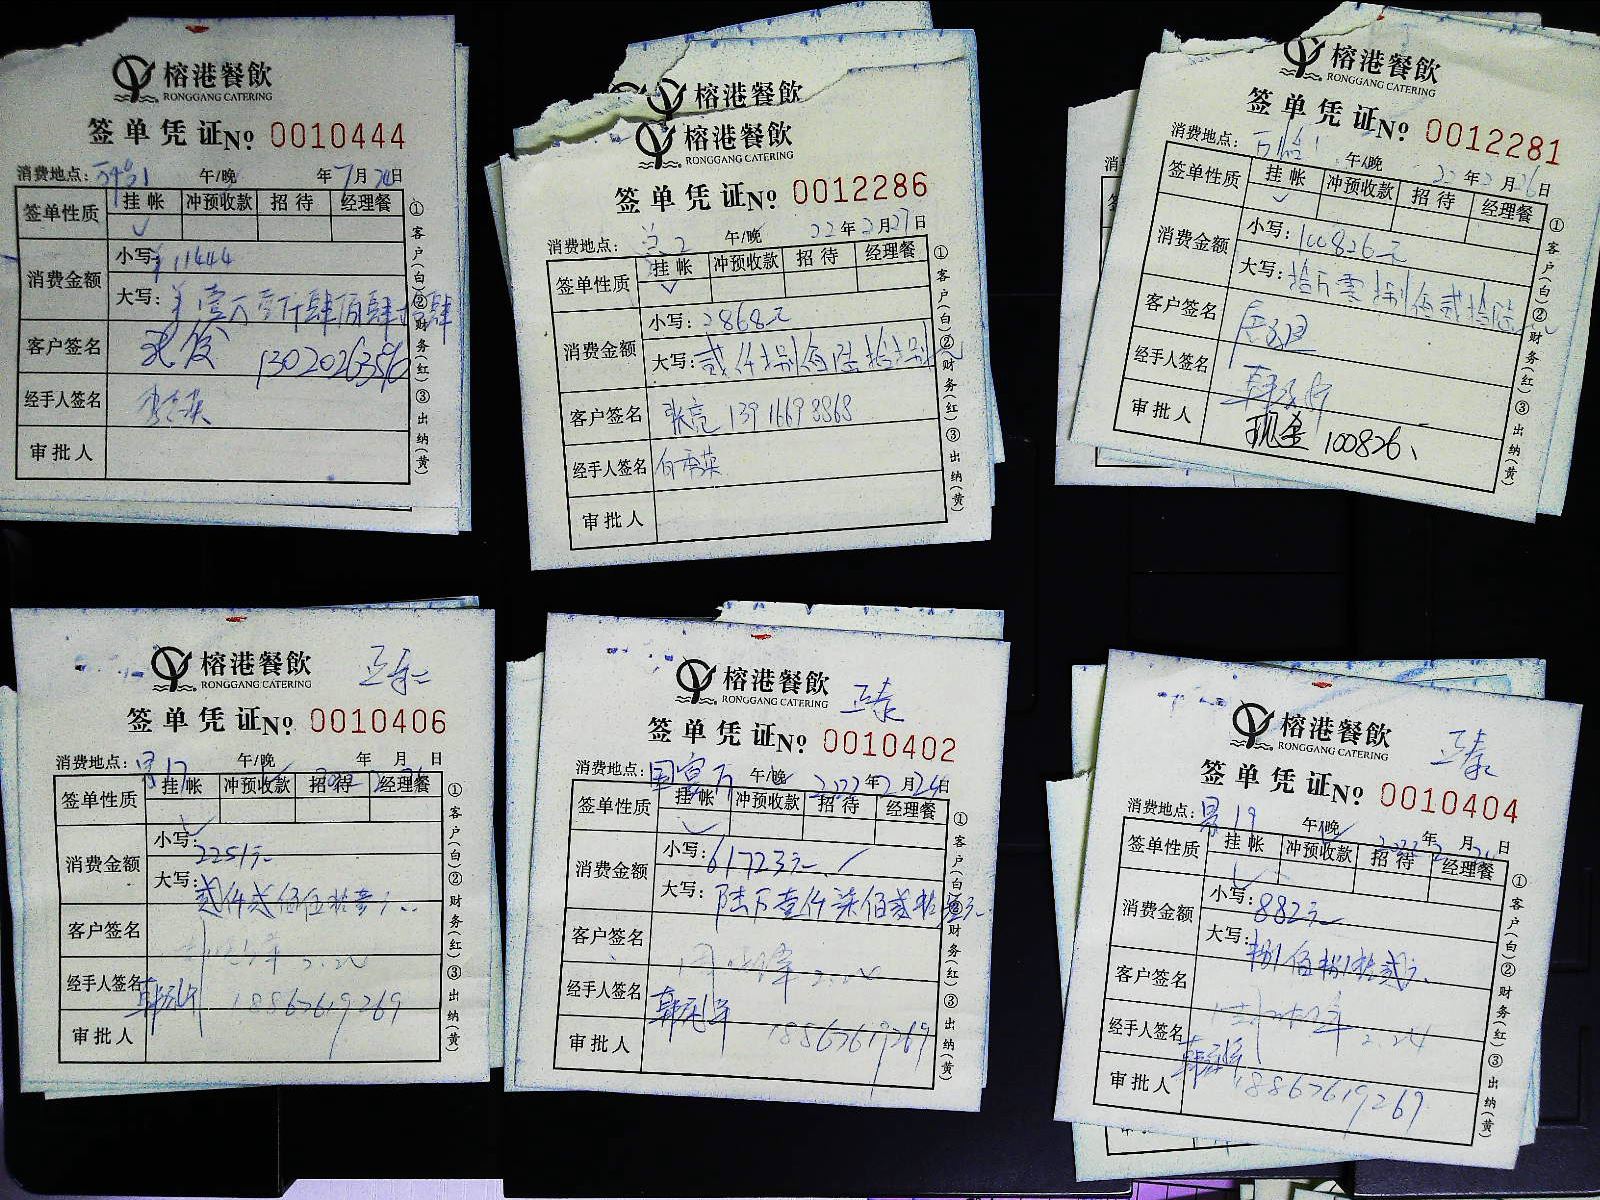 榕港餐飲
RONGGANG CATERING
签单凭证No 0010444
消费地点: 午/晚 年7月24日
签单性质 挂帐 冲预收款 招待 经理餐
✓
消费金额 小写: ¥11444
大写: 壹万壹仟肆佰肆拾肆
客户签名 13020263556
经手人签名
审批人
①客户(白)②财务(红)③出纳(黄)
榕港餐飲
榕港餐飲
RONGGANG CATERING
签单凭证No 0012286
消费地点: 午/晚 22年2月27日
签单性质 挂帐 冲预收款 招待 经理餐
✓
消费金额 小写: 2868元
大写: 贰仟捌佰陆拾捌元
客户签名 张亮 13916698868
经手人签名 何秀英
审批人
①客户(白)②财务(红)③出纳(黄)
榕港餐飲
RONGGANG CATERING
签单凭证No 0012281
消费地点: 午/晚 22年2月26日
签单性质 挂帐 冲预收款 招待 经理餐
✓
消费金额 小写: 100826元
大写: 拾万零捌佰贰拾陆元
客户签名
经手人签名
审批人 现金 100826、
①客户(白)②财务(红)③出纳(黄)
榕港餐飲
RONGGANG CATERING
签单凭证No 0010406
消费地点: 17 午/晚 年 月 日
签单性质 挂帐 冲预收款 招待 经理餐
✓
消费金额 小写: 2251元
大写: 贰仟贰佰伍拾壹元
客户签名 2.24
经手人签名 18867619269
审批人
①客户(白)②财务(红)③出纳(黄)
榕港餐飲
RONGGANG CATERING 正泰
签单凭证No 0010402
消费地点: 国宴厅 午/晚 2022年2月24日
签单性质 挂帐 冲预收款 招待 经理餐
✓
消费金额 小写: 61723元
大写: 陆万壹仟柒佰贰拾叁元
客户签名 2.24
经手人签名
审批人 18867619269
①客户(白)②财务(红)③出纳(黄)
榕港餐飲
RONGGANG CATERING 正泰
签单凭证No 0010404
消费地点: 19 午/晚 2022年2月24日
签单性质 挂帐 冲预收款 招待 经理餐
✓
消费金额 小写: 882元
大写: 捌佰捌拾贰元
客户签名
经手人签名 2.24
审批人 18867619269
①客户(白)②财务(红)③出纳(黄)